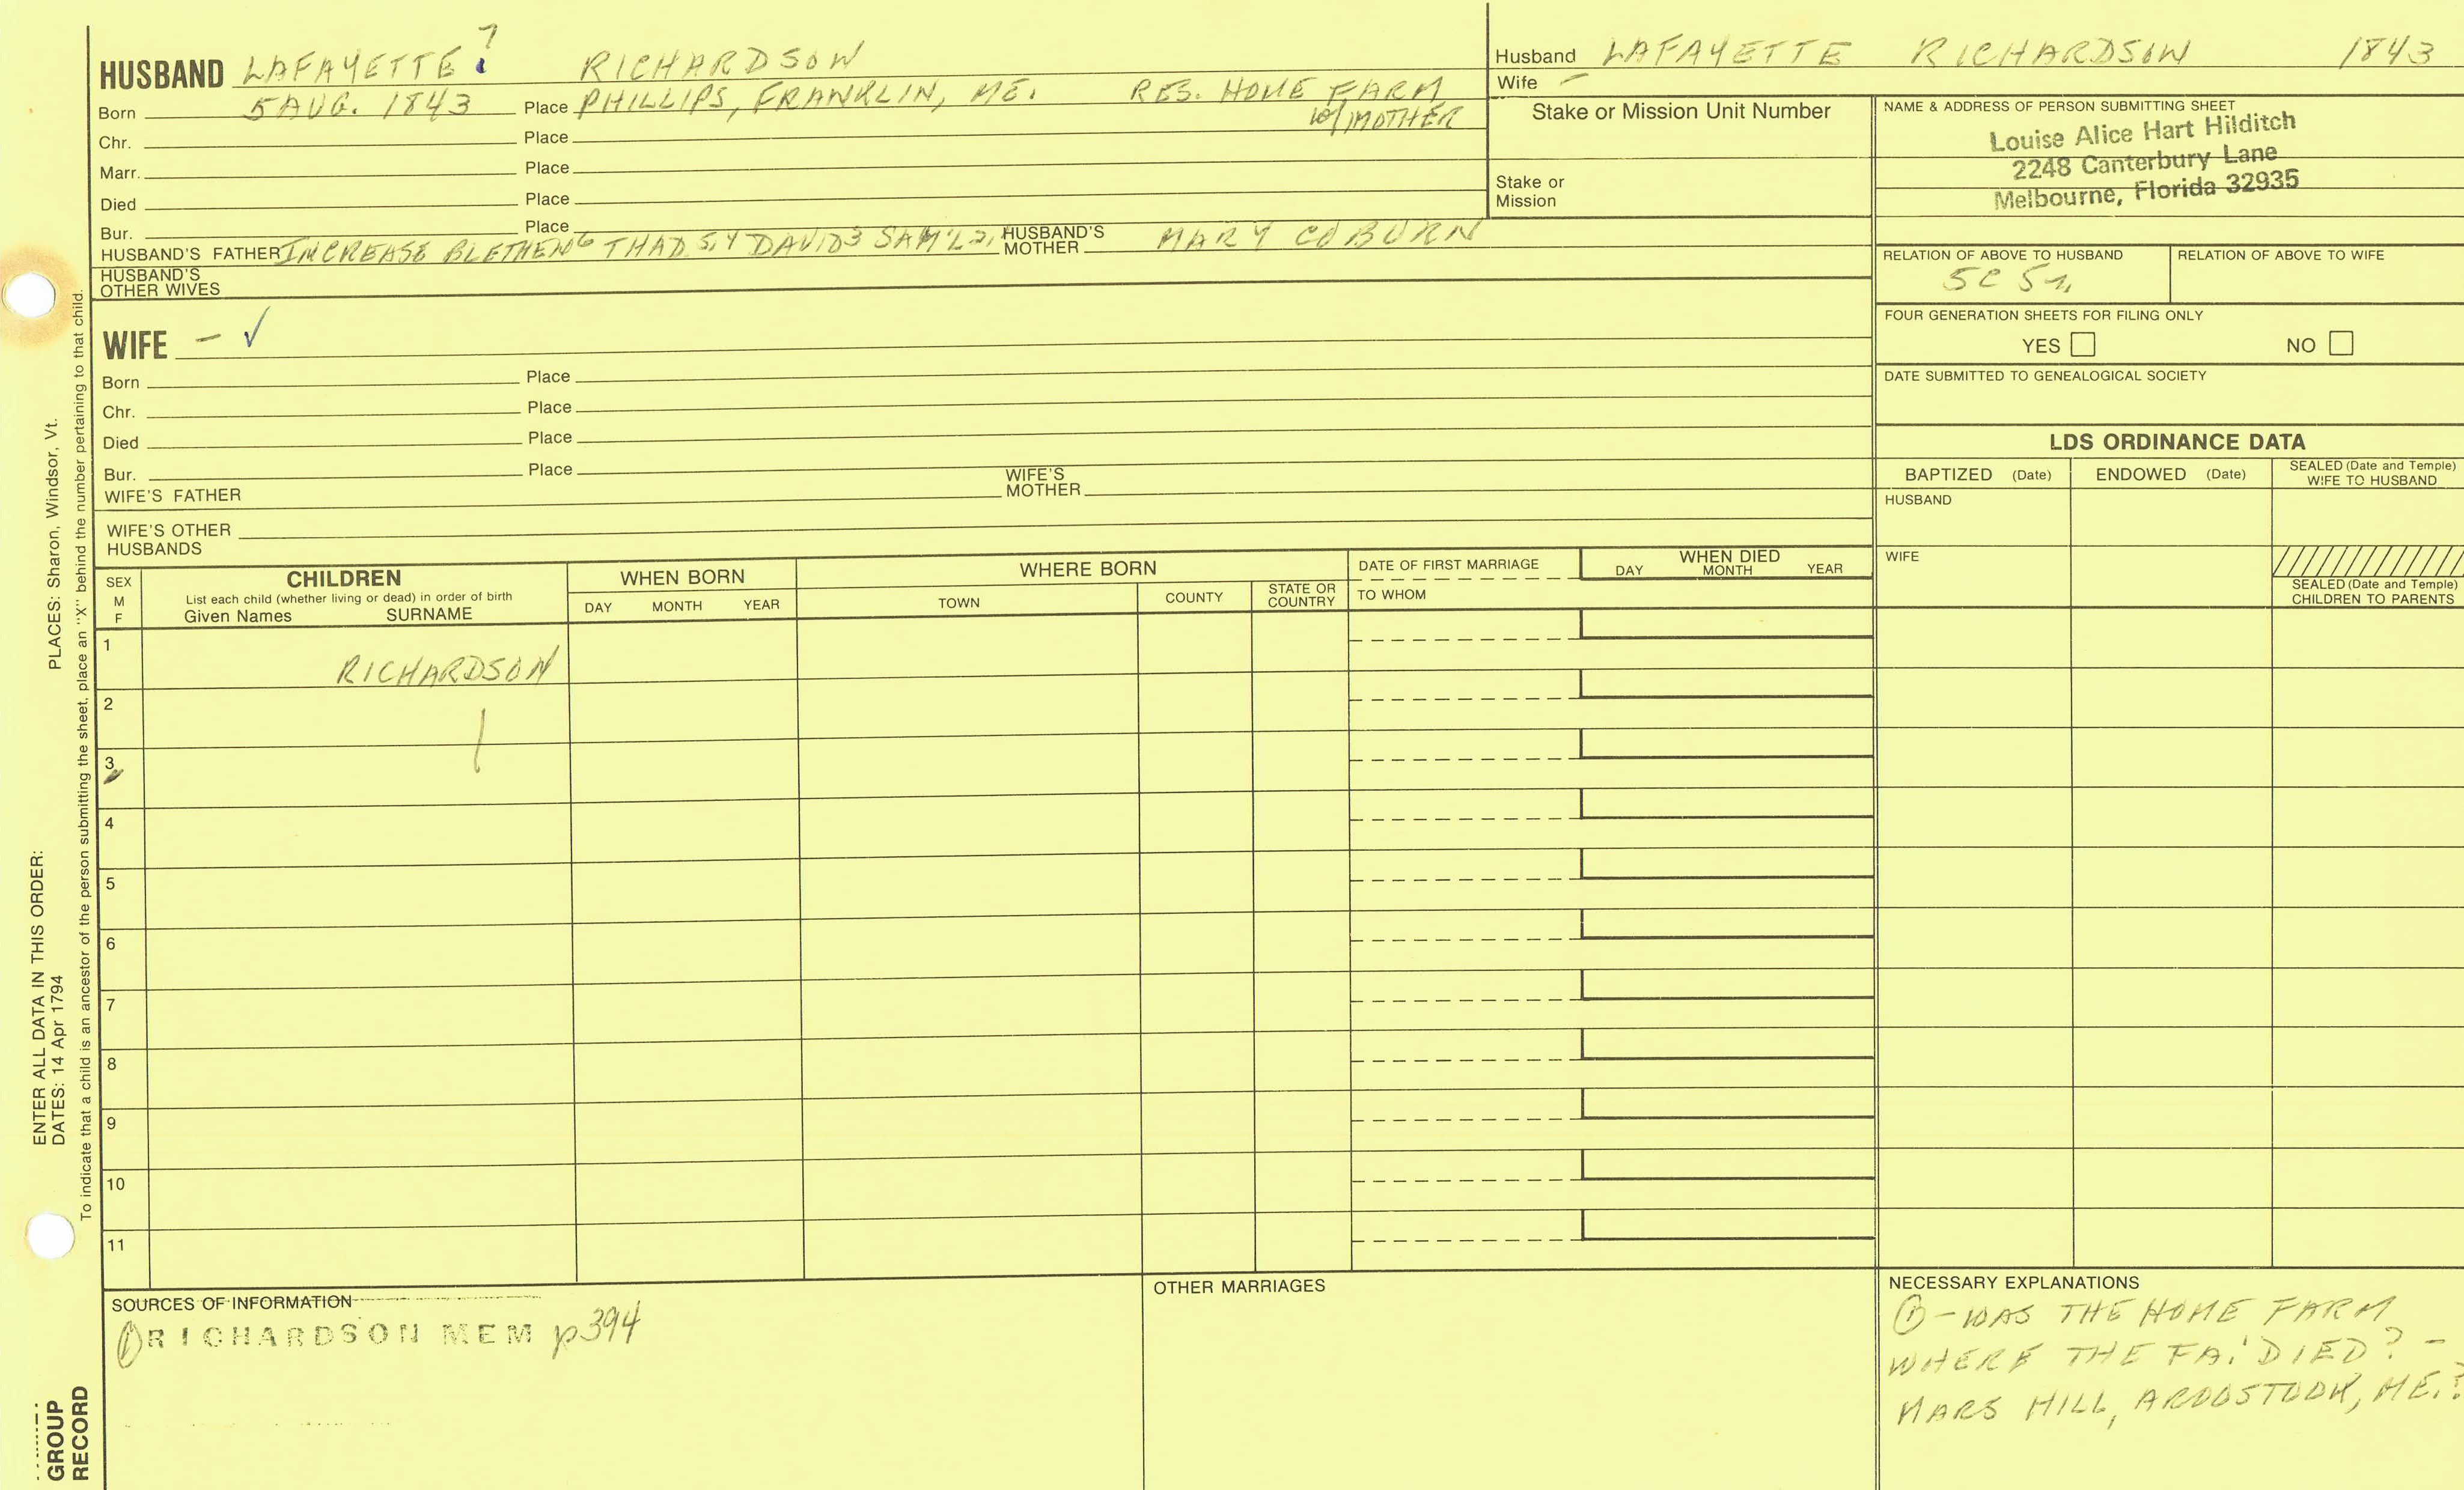 HUSBAND LAFAYETTE ? RICHARDSON
Born 5 AUG. 1843 Place PHILLIPS, FRANKLIN, ME. RES. HOME FARM
W/MOTHER
Chr. Place
Marr. Place
Died Place
Bur. Place
HUSBAND'S FATHER INCREASE BLETHEN6 THAD 5,4 DAVID3 SAM'L2,1 HUSBAND'S MOTHER MARY COBURN
HUSBAND'S OTHER WIVES
WIFE - ✓
Born Place
Chr. Place
Died Place
Bur. Place
WIFE'S FATHER WIFE'S MOTHER
WIFE'S OTHER HUSBANDS
Husband LAFAYETTE RICHARDSON 1843
Wife -
Stake or Mission Unit Number
Stake or Mission
NAME & ADDRESS OF PERSON SUBMITTING SHEET
Louise Alice Hart Hilditch
2248 Canterbury Lane
Melbourne, Florida 32935
RELATION OF ABOVE TO HUSBAND RELATION OF ABOVE TO WIFE
5C 5r,
FOUR GENERATION SHEETS FOR FILING ONLY
YES NO
DATE SUBMITTED TO GENEALOGICAL SOCIETY
LDS ORDINANCE DATA
BAPTIZED (Date) ENDOWED (Date) SEALED (Date and Temple) WIFE TO HUSBAND
HUSBAND
WIFE
SEALED (Date and Temple) CHILDREN TO PARENTS
SEX M F
CHILDREN
List each child (whether living or dead) in order of birth
Given Names SURNAME
WHEN BORN
DAY MONTH YEAR
WHERE BORN
TOWN COUNTY STATE OR COUNTRY
DATE OF FIRST MARRIAGE
TO WHOM
WHEN DIED
DAY MONTH YEAR
1 RICHARDSON
2
3
4
5
6
7
8
9
10
11
SOURCES OF INFORMATION
① RICHARDSON MEM p394
OTHER MARRIAGES
NECESSARY EXPLANATIONS
① - WAS THE HOME FARM
WHERE THE FA. DIED? -
MARS HILL, AROOSTOOK, ME.?
ENTER ALL DATA IN THIS ORDER:
DATES: 14 Apr 1794 PLACES: Sharon, Windsor, Vt.
To indicate that a child is an ancestor of the person submitting the sheet, place an "X" behind the number pertaining to that child.
GROUP
RECORD